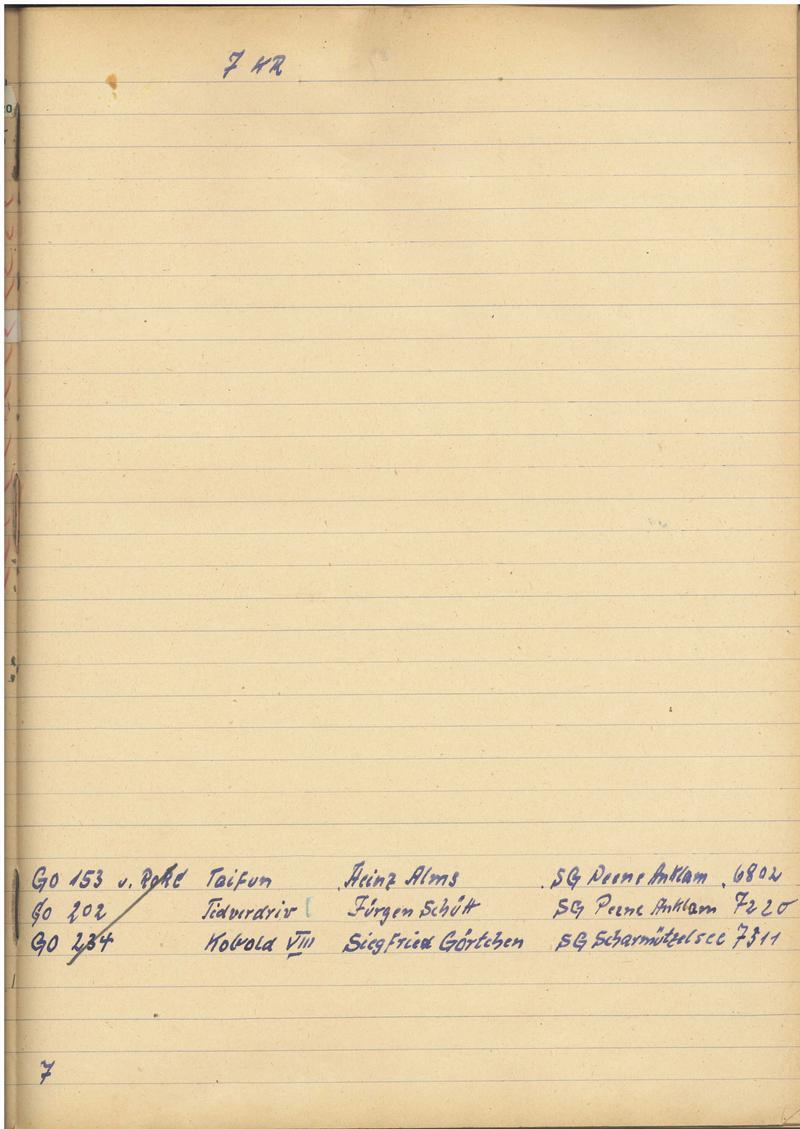 7 KR
GO 153 v. Taifun Heinz Alms SG Peene Anklam 6802
GO 202 Tidverdriv Jürgen Schütt SG Peene Anklam 7220
GO 234 Kobold VIII Siegfried Görtchen SG Scharmützelsee 7311
7